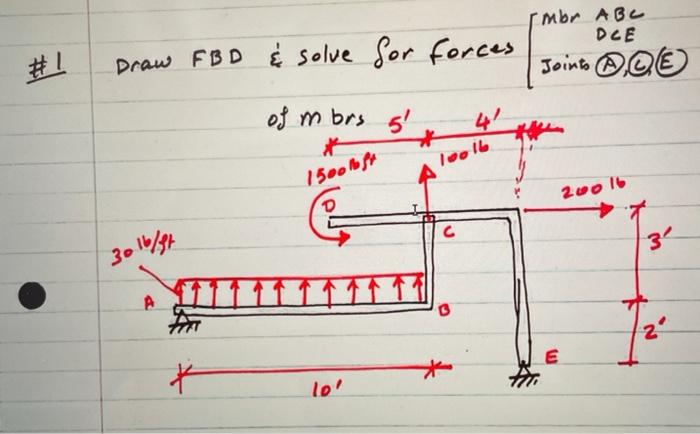 #1 Draw FBD & solve for forces
of mbrs
Mbr ABC
DCE
Joints A, C, E
5'
4'
1500 lb ft
100 lb
D
200 lb
C
3'
30 lb/ft
A
B
2'
E
10'